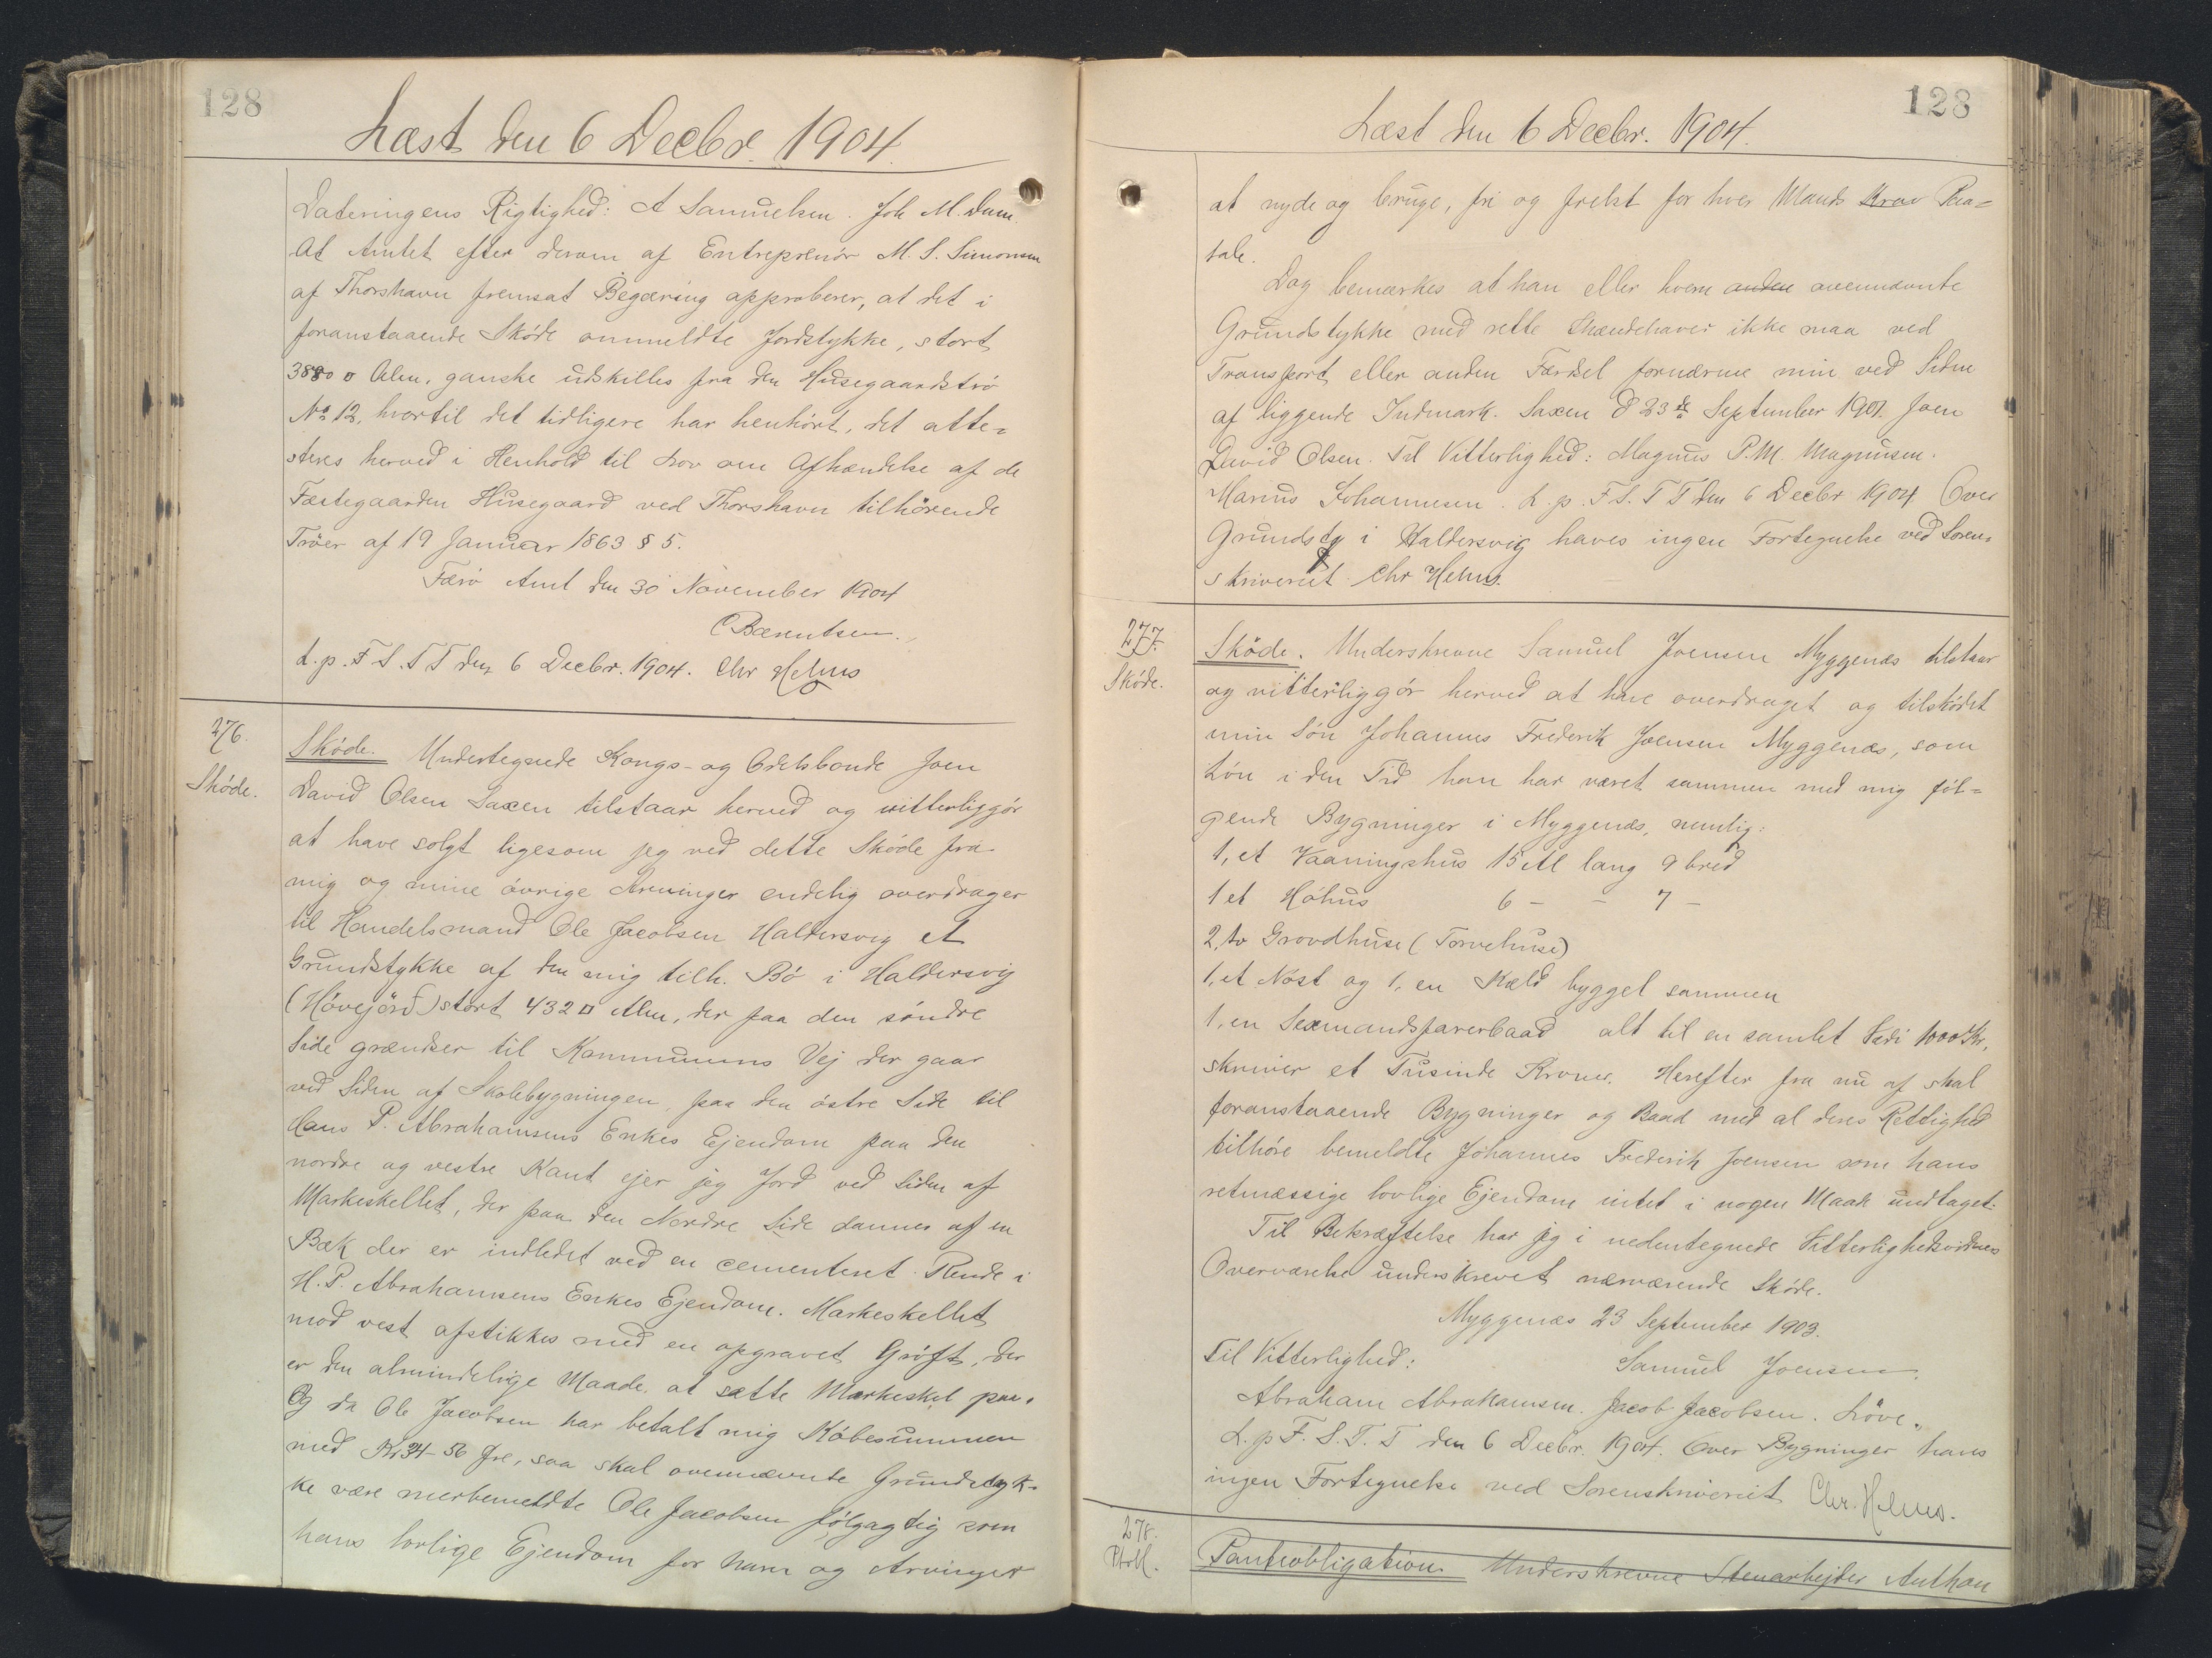 128
Læst den 6 Decbr. 1904.
Dateringens Rigtighed: A Samuelsen. Joh M. Dam.
At Amtet efter derom af Entreprenör M. S. Simonsen
af Thorshavn fremsat Begæring approberer, at det i
foranstaaende Sköde ommeldte Jordstykke, stort
3880 □ Alen, ganske udskilles fra den Husegaardströ
No 12, hvortil det tidligere har henhört, det atte=
steres herved i Henhold til Lov om Afhændelse af de
Fæstegaarden Husegaard ved Thorshavn tilhörende
Tröer af 19 Januar 1863 § 5.
Færö Amt den 30 November 1904
C Bærentsen.
L. p. F. S. T T den 6 Decbr. 1904. Chr Helms
276.
Sköde.
Sköde. Undertegnede Kongs- og Odelsbonde Joen
David Olsen Saxen tilstaar herved og vitterliggör
at have solgt ligesom jeg ved dette Sköde fra
mig og mine övrige Arvinger endelig overdrager
til Handelsmand Ole Jacobsen Haldersvig et
Grundstykke af den mig tilh. Bö i Haldersvig
(Hövejörd) stort 432 □ Alen, der paa den söndre
Side grændser til Kommunens Vej der gaar
ved Siden af Skolebygningen, paa den östre Side til
Hans P. Abrahamsens Enkes Ejendom paa den
nordre og vestre Kant ejer jeg Jord ved Siden af
Markeskellet, der paa den Nordre Side dannes af en
Bæk der er indledet ved en cementeret Rende i
H. P. Abrahamsens Enkes Ejendom. Markeskellet
mod vest afstikkes med en opgravet Gröft, der
er den almindelige Maade at sætte Markeskel paa.
Og da Ole Jacobsen har betalt mig Köbesummen
med Kr 34-56 Øre, saa skal ovennævnte Grundstyk-
ke være merbemeldte Ole Jacobsen fölgagtig som
hans lovlige Ejendom for ham og Arvinger
128
Læst den 6 Decbr. 1904.
at nyde og bruge, fri og frelst for hver Mands Krav Paa=
tale.
Dog bemærkes at han eller hvem anden ovennævnte
Grundstykke med rette Ihændehaver ikke maa ved
Transport eller anden Færdsel fornærme min ved Siden
af liggende Indmark. Saxen d 23de September 1901. Joen
David Olsen. Til Vitterlighed: Magnus P. M. Magnusen.
Marius Johannesen. L. p. F. S. T T den 6 Decbr 1904 Over
Grundsty i Haldersvig haves ingen Fortegnelse ved Soren=
skriveriet Chr Helms.
277.
Sköde.
Sköde. Underskrevne Samuel Joensen Myggenæs tilstaar
og vitterliggör herved at have overdraget og tilsködet
min Sön Johannes Frederik Joensen Myggenæs, som
Lön i den Tid han har været sammen med mig föl=
gende Bygninger i Myggenæs, nemlig:
1, et Vaaningshus 15 Al lang 9 bred
1 et Höhus 6 - - 7 -
2, to Grovdhuse (Torvehuse)
1, et Nöst og 1, en Kæld bygget sammen
1, en Sexmandsfarerbaad alt til en samlet Værdi 1000 Kr,
skriver et Tusinde Kroner. Herefter fra nu af skal
foranstaaende Bygninger og Baad med al deres Rettighed
tilhöre bemeldte Johannes Frederik Joensen som hans
retmæssige lovlige Ejendom intet i nogen Maade undtaget.
Til Bekræftelse har jeg i nedentegnede Vitterlighedsvidners
Overværelse underskrevet nærværende Sköde.
Myggenæs 23 September 1903.
Til Vitterlighed: Samuel Joensen.
Abraham Abrahamsen. Jacob Jacobsen. Löve.
L. p F. S. T. T den 6 Decbr. 1904. Over Bygninger haves
ingen Fortegnelse ved Sorenskriveriet Chr. Helms.
278.
Panteobligation Underskrevne Stenarbejder Anthon